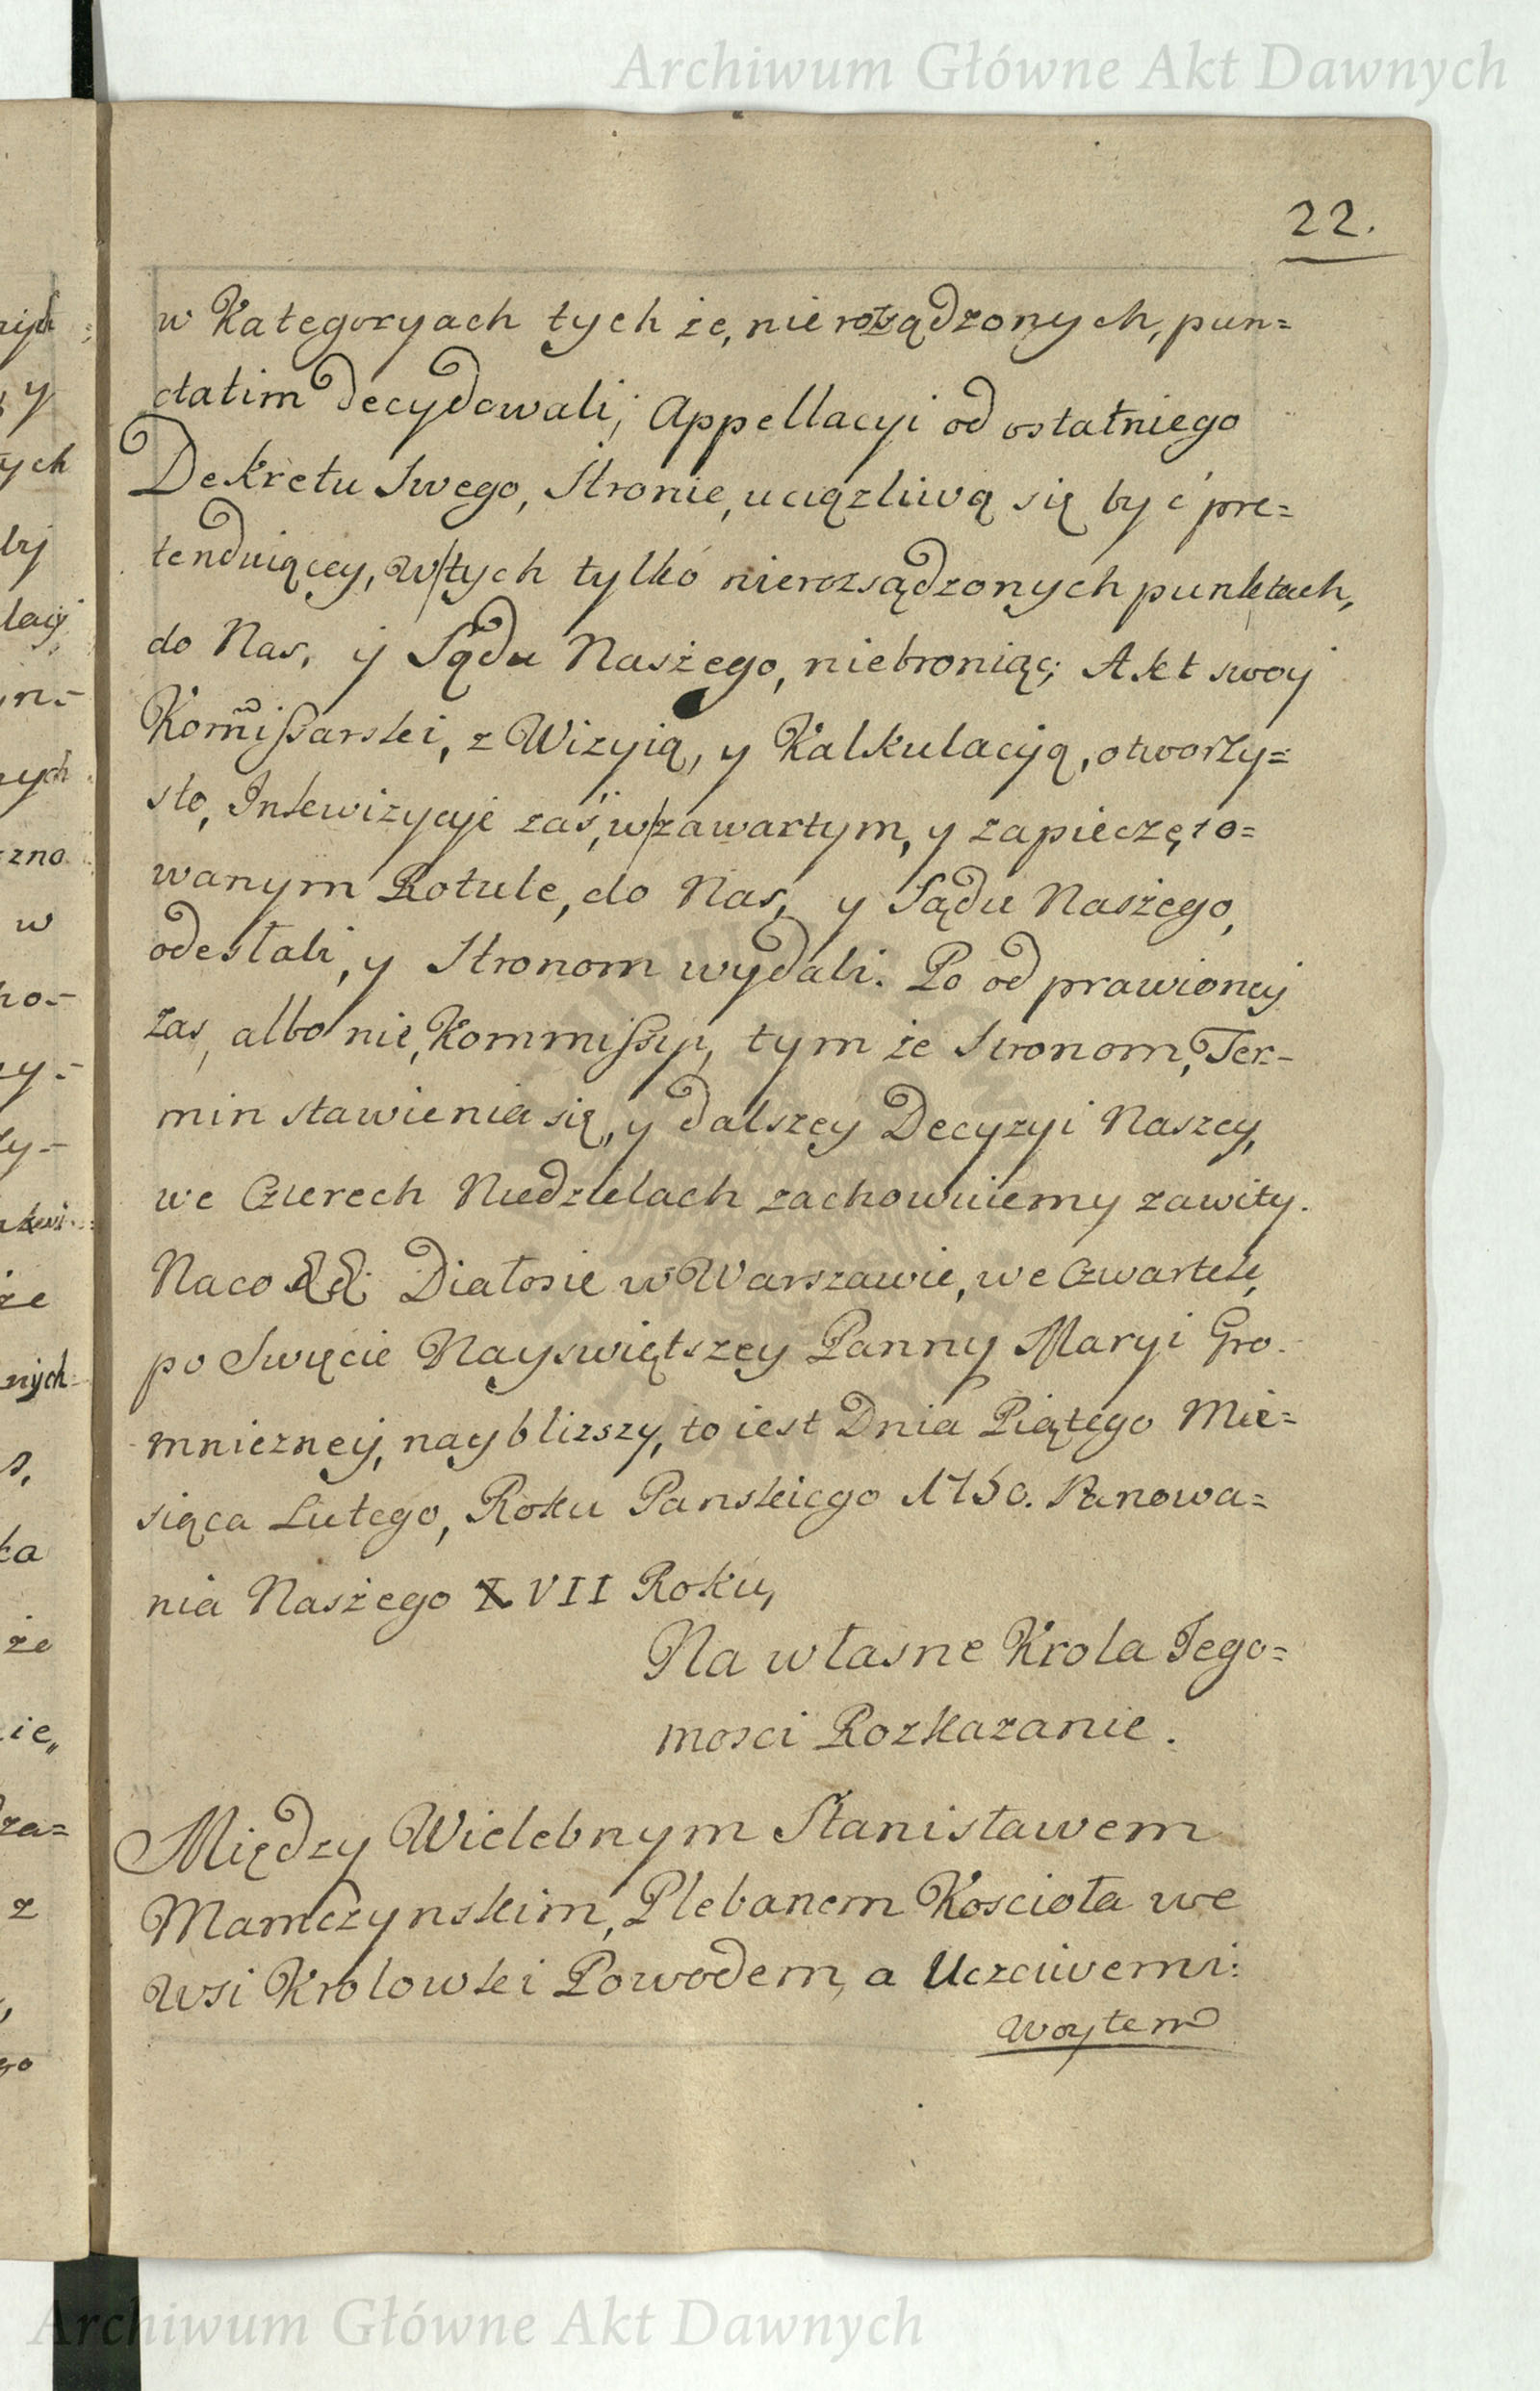 Archiwum Główne Akt Dawnych
22.
w Kategoryach tych że, nie rozsądzonych, pun=
ctatim decydowali, Appellacyi od ostatniego
Dekretu Swego, Stronie, uciązliwą się być pre=
tenduiącey, w tych tylko nierozsądzonych punktach,
do Nas, ÿ Sądu Naszego, niebroniąc; Akt swoy
Kom̃issarski, z Wizyią, y Kalkulacyą, otworzy=
sto, Inkwizycyje zaś, w zawartym, y zapieczęto=
wanym Rotule, do Nas, y Sądu Naszego,
odesłali, y Stronom wydali. Po od prawioney
zas, albo nie, Kommissyi, tym że Stronom, Ter=
min stawienia się, y dalszey Decyzyi Naszey,
we Czterech Niedzielach zachowuiemy zawity.
Naco &&. Działosie w Warszawie, we Czwartek,
po Swięcie Nayswiętszey Panny Maryi Gro=
mniczney, nayblizszy, to iest Dnia Piątego Mie=
siąca Lutego, Roku Panskiego 1750. Panowa=
nia Naszego XVII Roku,
Na własne Krola Jego=
mosci Rozkazanie.
Między Wielebnym Stanisławem
Mamczynskim, Plebanem Koscioła we
Wsi Krolowski Powodem, a Uczciwemi:
Woytem
Archiwum Główne Akt Dawnych